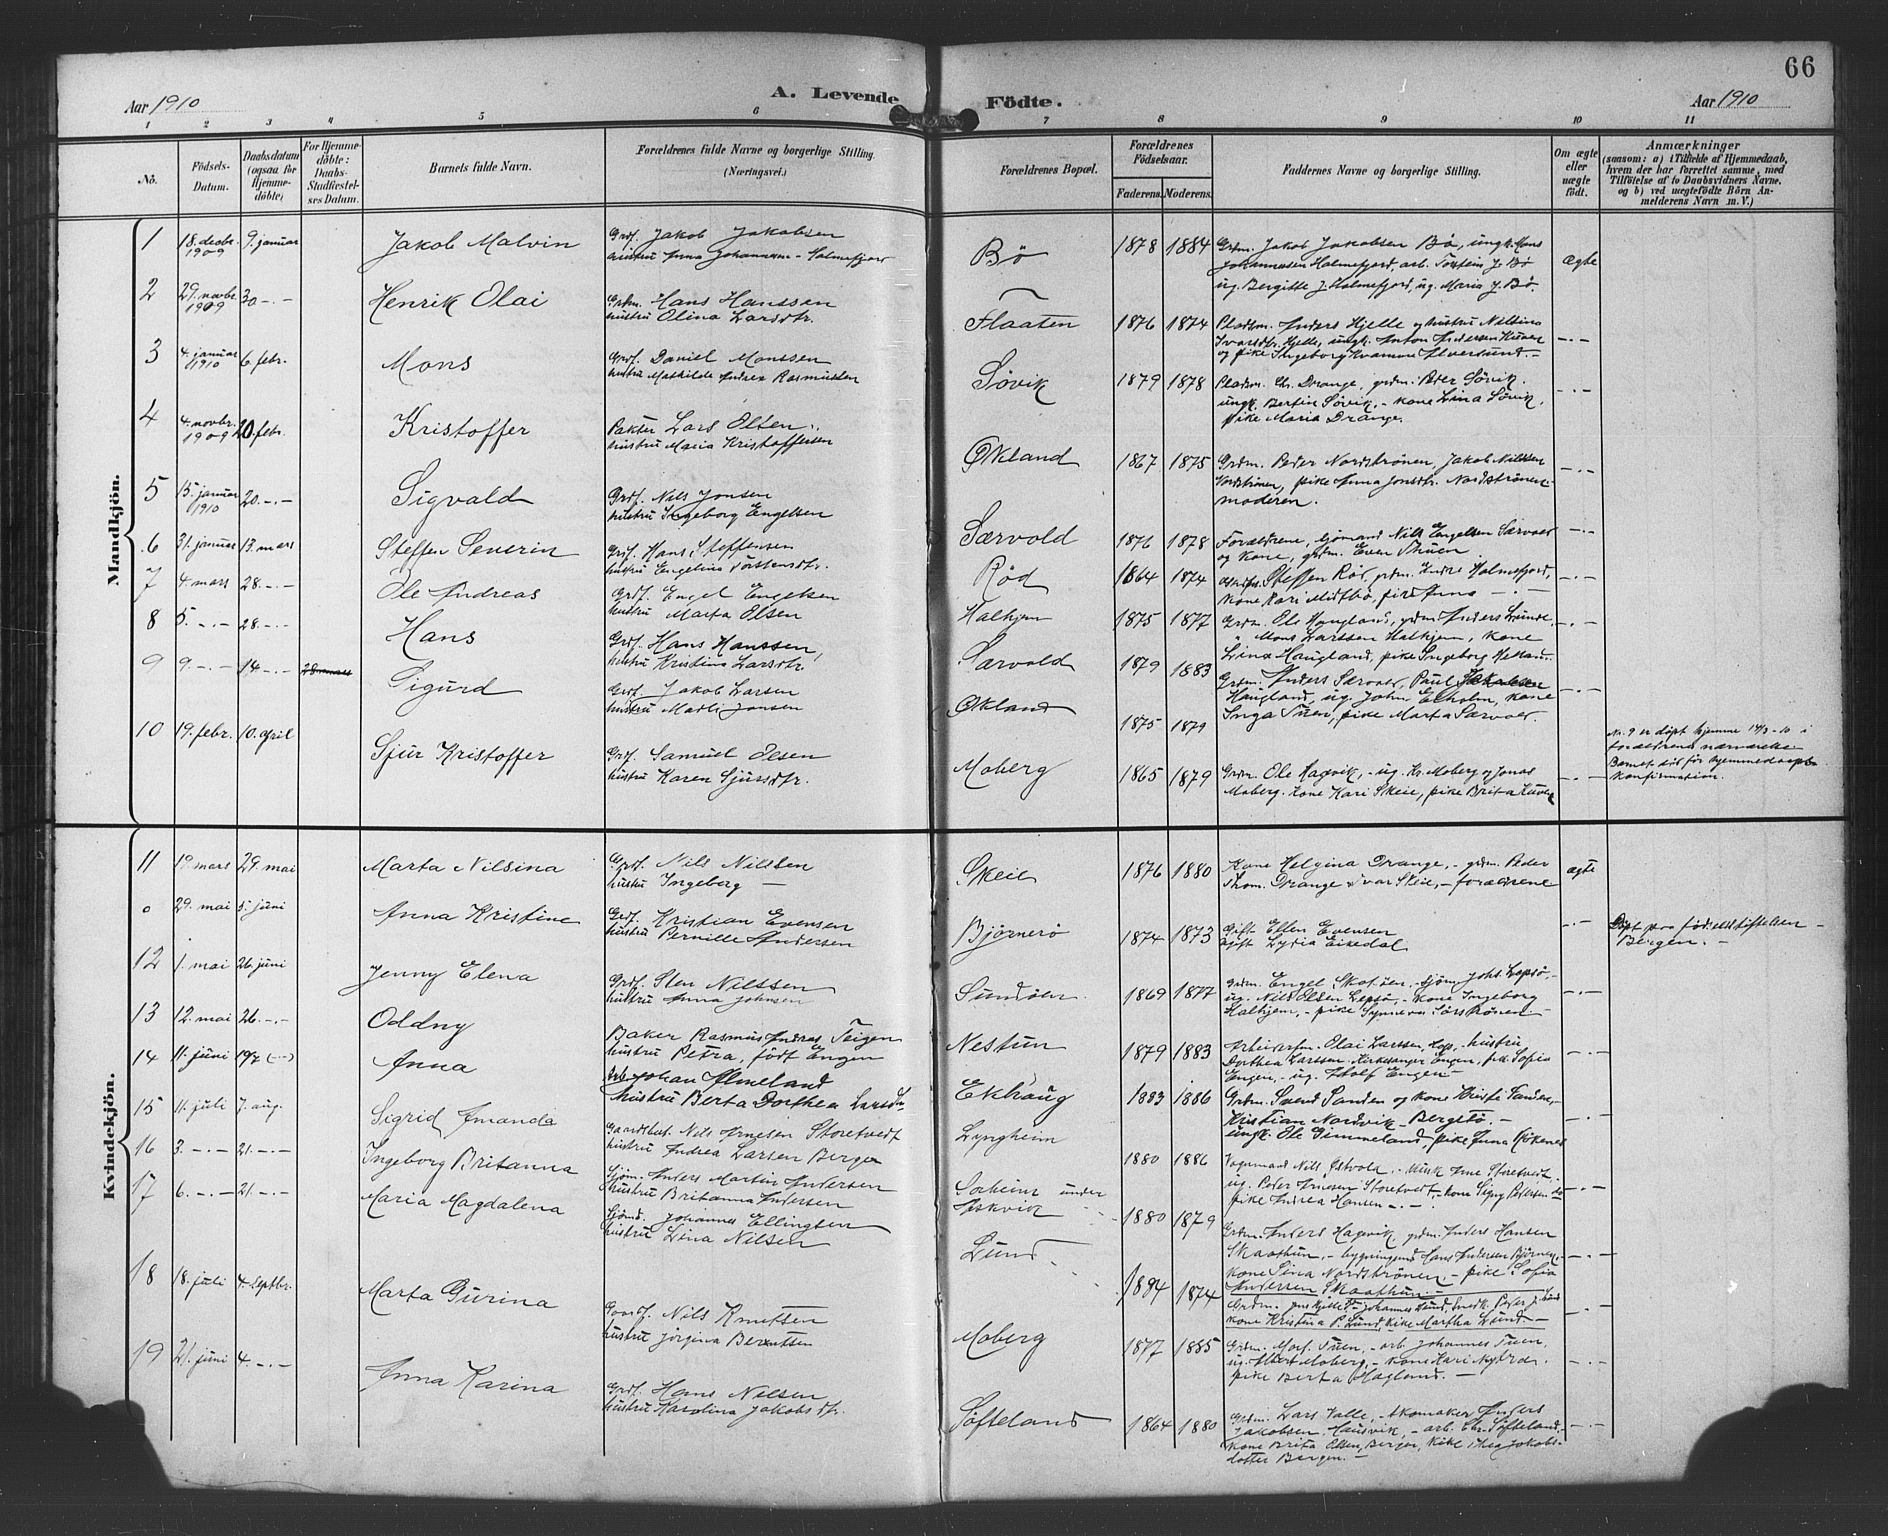 66
Aar 1910
A. Levende
Födte.
Aar 1910
1 2 3 4 5 6 7 8 9 10 11
No.
Födsels-Datum.
Daabsdatum (ogsaa for Hjemme-döbte)
For Hjemme-döbte: Daabs-Stadfæstel-ses Datum.
Barnets fulde Navn.
Forældrenes fulde Navne og borgerlige Stilling
(Næringsvei.)
Forældrenes Bopæl.
Forældrenes Födselsaar.
Faderens. Moderens.
Faddernes Navne og borgerlige Stilling.
Om ægte eller uægte födt.
Anmærkninger
(saasom: a) i Tilfælde af Hjemmedaab,
hvem der har forrettet samme, med
Tilföielse af to Daabsvidners Navne,
og b) ved uægtefödte Börn An-
melderens Navn m. V.)
Mandkjön.
1 18. decbr. 1909 9. januar Jakob Malvin
Grdf. Jakob Jakobsen
hustru Anna Johannesen - Holmefjord
Bö 1878 1884
Grdm. Jakob Jakobsen Bö, ungk. Hans
Johannesen Holmefjord, arb. Torstein J. Bö
ug. Bergitte J. Holmefjord, ug. Maria J. Bö.
ægte
2 29. novbr. 1909 30 - - Henrik Olai
Grdm. Hans Hanssen
hustru Olina Larsdtr.
Flaaten 1876 1874
Pladsm. Anders Hjelle og hustru Nilsina
Ivarsdtr. Hjelle, ungk. Anton Andersen
og pike Ingeborg Kvamme Alversund -
- . -
3 4. januar 1910 6 febr. Mons
Grdf. Daniel Monssen
hustru Mathilde Andrea Rasmussen
Sövik 1879 1878
Pladsm. Chr. Drange, grdm. Peder Sövik.
ungk. Bertin Sövik, - kone Lina Sövik,
pike Maria Drange.
- . -
4 4. novbr. 1909 20. febr. Kristoffer
Pakter Lars Olsen.
hustru Maria Kristoffersen
Økland 1867 1875
Grdm. Peder Nordströnen, Jakob Nilssen
Nordströnen, pike Anna Jonsdtr. Nordströnen
moderen.
- . -
5 15. januar 1910 20. - . - Sigvald
Grdf. Nils Jonsen
hustru Ingeborg Engelsen
Særvold 1876 1878
Forældrene, sjömand Nils Engelsen Særvold
og kone, grdm. Even Thuen
- . -
6 31. januar 13. mars Steffen Severin
Grdf. Hans Steffensen
hustru Engelina Torstensdtr.
Röd 1864 1874
Steffen Röd, grdm. Endre Holmefjord,
kone Kari Midtbö, pike Anna - . -
- . -
7 4. mars 28. - . - Ole Andreas
Grdf. Engel Engelsen
hustru Marta Olsen
Halhjem 1875 1877
Grdm. Ole Haugland, grdm. Anders Lunde,
" Mons Larssen Halhjem, kone
Lina Haugland, pike Ingeborg
- . -
8 5. - . - 28. - . - Hans
Grdf. Hans Hanssen,
hustru Kristina Larsdtr.
Særvold 1879 1883
Grdm. Anders Særvold, Paul
Haugland, ug. John Ekholm, kone
Inga Tuen, pike Marta Særvold.
- . -
9 9. - . - 14 - . - 28 mars Sigurd
Grdf. Jakob Larsen
hustru Marli Jonsen
Økland 1875 1879
No. 9 er döpt hjemme 14/3 - 10 i
forældrenes nærværelse
Barnet död för hjemmedaapens
konfirmation.
10 19. febr. 10. april Sjur Kristoffer
Grdf. Samuel Olsen
hustru Karen Sjursdtr.
Moberg 1865 1879
Grdm. Ole Hagvik, - ug. Kr. Moberg og Jonas
Moberg. Kone Kari Skeie, pike Brita
- . -
Kvindekjön.
11 19 mars 29. mai Marta Nilsina
Grdf. Nils Nilssen
hustru Ingeborg -
Skeie 1876 1880
Kone Helgina Drange, - grdm. Peder
Thom. Drange Ivar Skeie, - forældrene
ægte
0 29. mai 5. juni Anna Kristine
Grdf. Kristian Evensen
hustru Pernille Andersen
Björnerö 1874 1873
Gift Effen Evensen
Gift Lydia Eikedal
- . -
Döpt paa födselsstiftelsen
Bergen. -
12 1. mai 26. juni Jenny Elena
Grdf. Sten Nilssen
hustru Anna Johnsen
Sundöen 1869 1877
Grdm. Engel Skoröen, - sjöm. Johs. Lepsö,
ug. Nils Olsen Lepsö, - kone Ingeborg
Halhjem, - pike Synneva Sörströnen -
- . -
13 12. mai 26. - . - Oddny
Baker Rasmus Andreas Teigen
hustru Petra, född Engen
Nestun 1879 1883
Arbeiderfm. Olai Larssen, - hustru
Dorthea Larssen, Kirkesanger Engen, pike Sofia
Engen, - ug. Adolf Engen -
- . -
14 11. juni (- . -) Anna
Arb. Johan Almeland
hustru Berta Dorthea Larsdtr
Ekhaug 1883 1886
Grdm. Svend Sanden og kone Kristi Sanden, -
Kristian Nordvik - Bergstö -
ungk. Ole Gimmeland, pike Anna Rökenes
- . -
15 11. juli 7. aug. Sigrid Amanda
Gaardsbest. Nils Arnesen Storetvedt
hustru Andrea Larsen Berge
Lyngheim 1880 1886
Vognmand Nils Østvold, - Arne Storetvedt,
ug. Peder Arnesen Storetvedt, - kone Signy Pedersen do
pike Andrea Hansen - . -
- . -
16 3. - . - 21. - . - Ingeborg Britanna
Sjöm. Anders Martin Andersen
hustru Britanna Andersen
Solheim under
Askvik 1880 1879
Grdm. Anders Hagvik, grdm. Anders Hansen
Skaathun, - bygningsmd. Hans Andersen Björnen, -
kone Sina Nordströnen, - pike Sofia
Andersen Skaathun. -
- . -
17 6. - . - 21. - . - Maria Magdalena
Sjömd. Johannes Ellingsen
hustru Lina Nilsen
Lund 1884 1874
Grdm. Jens Hjelle, Johannes Lund, Smedk. Peder J. Lund
kone Kristina P. Lund, pike Martha Lund -
- . -
18 18. juli 4. septbr. Marta Gurina
Gaardf. Nils Knutsen
hustru Jörgina Berentsen
Moberg 1877 1885
Grdm. Mons. Tuen, - arb. Johannes Tuen,
ug. Albert Moberg, - kone Kari
pike Berta Hagland. -
- . -
19 21. juni 4. - . - Anna Karina
Grdf. Hans Nilsen
hustru Karolina Jakobsdtr.
Söfteland 1864 1880
Grdm. Lars Valle, - skomaker Anders
Jakobsen, Hausvik, - arb. Chr. Söfteland,
kone Brita Olsen, Bergen, Pike Thea Jakobs-
dotter Bergen. -
- . -